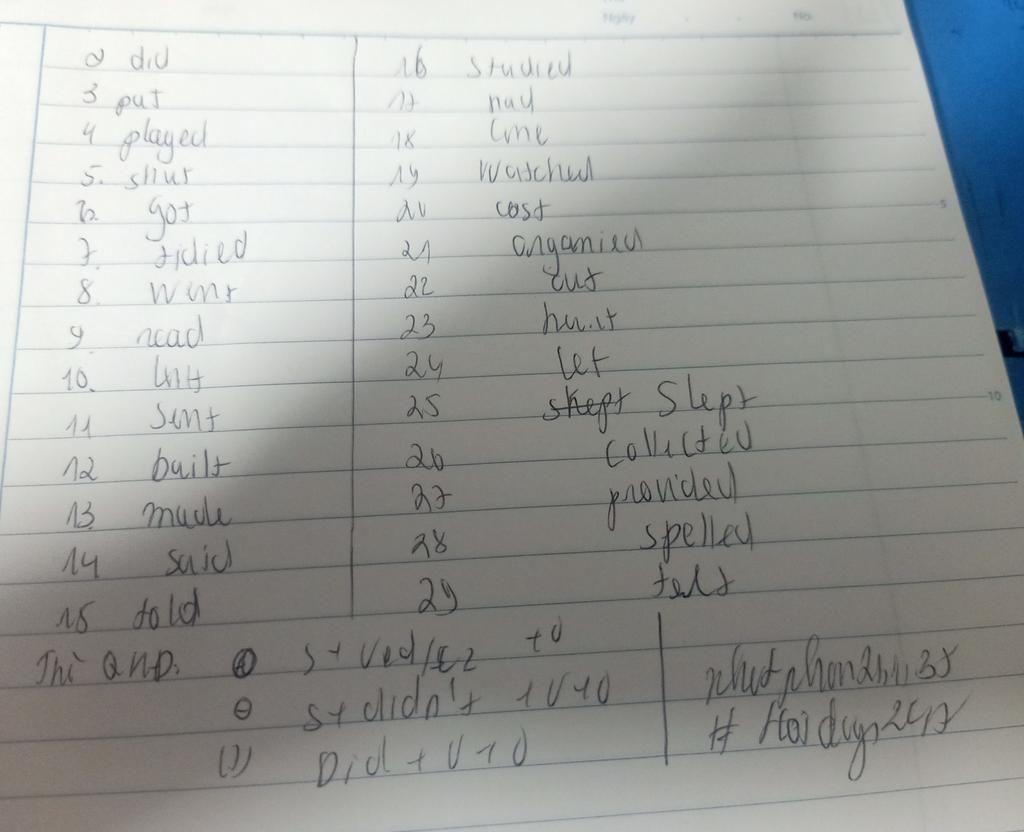 Ngày No.
2 did
3 put
4 played
5. shut
6. got
7. tidied
8. went
9. read
10. lent
11 sent
12 built
13 made
14 said
15 told
16 studied
17 had
18 came
19 watched
20 cost
21 organied
22 cut
23 hurt
24 let
25 slept
26 collected
27 provided
28 spelled
29 felt
5
10
Thì QKĐ. (+) S + Ved/c2 + O
(-) S + didn't + V + O
(?) Did + V + O